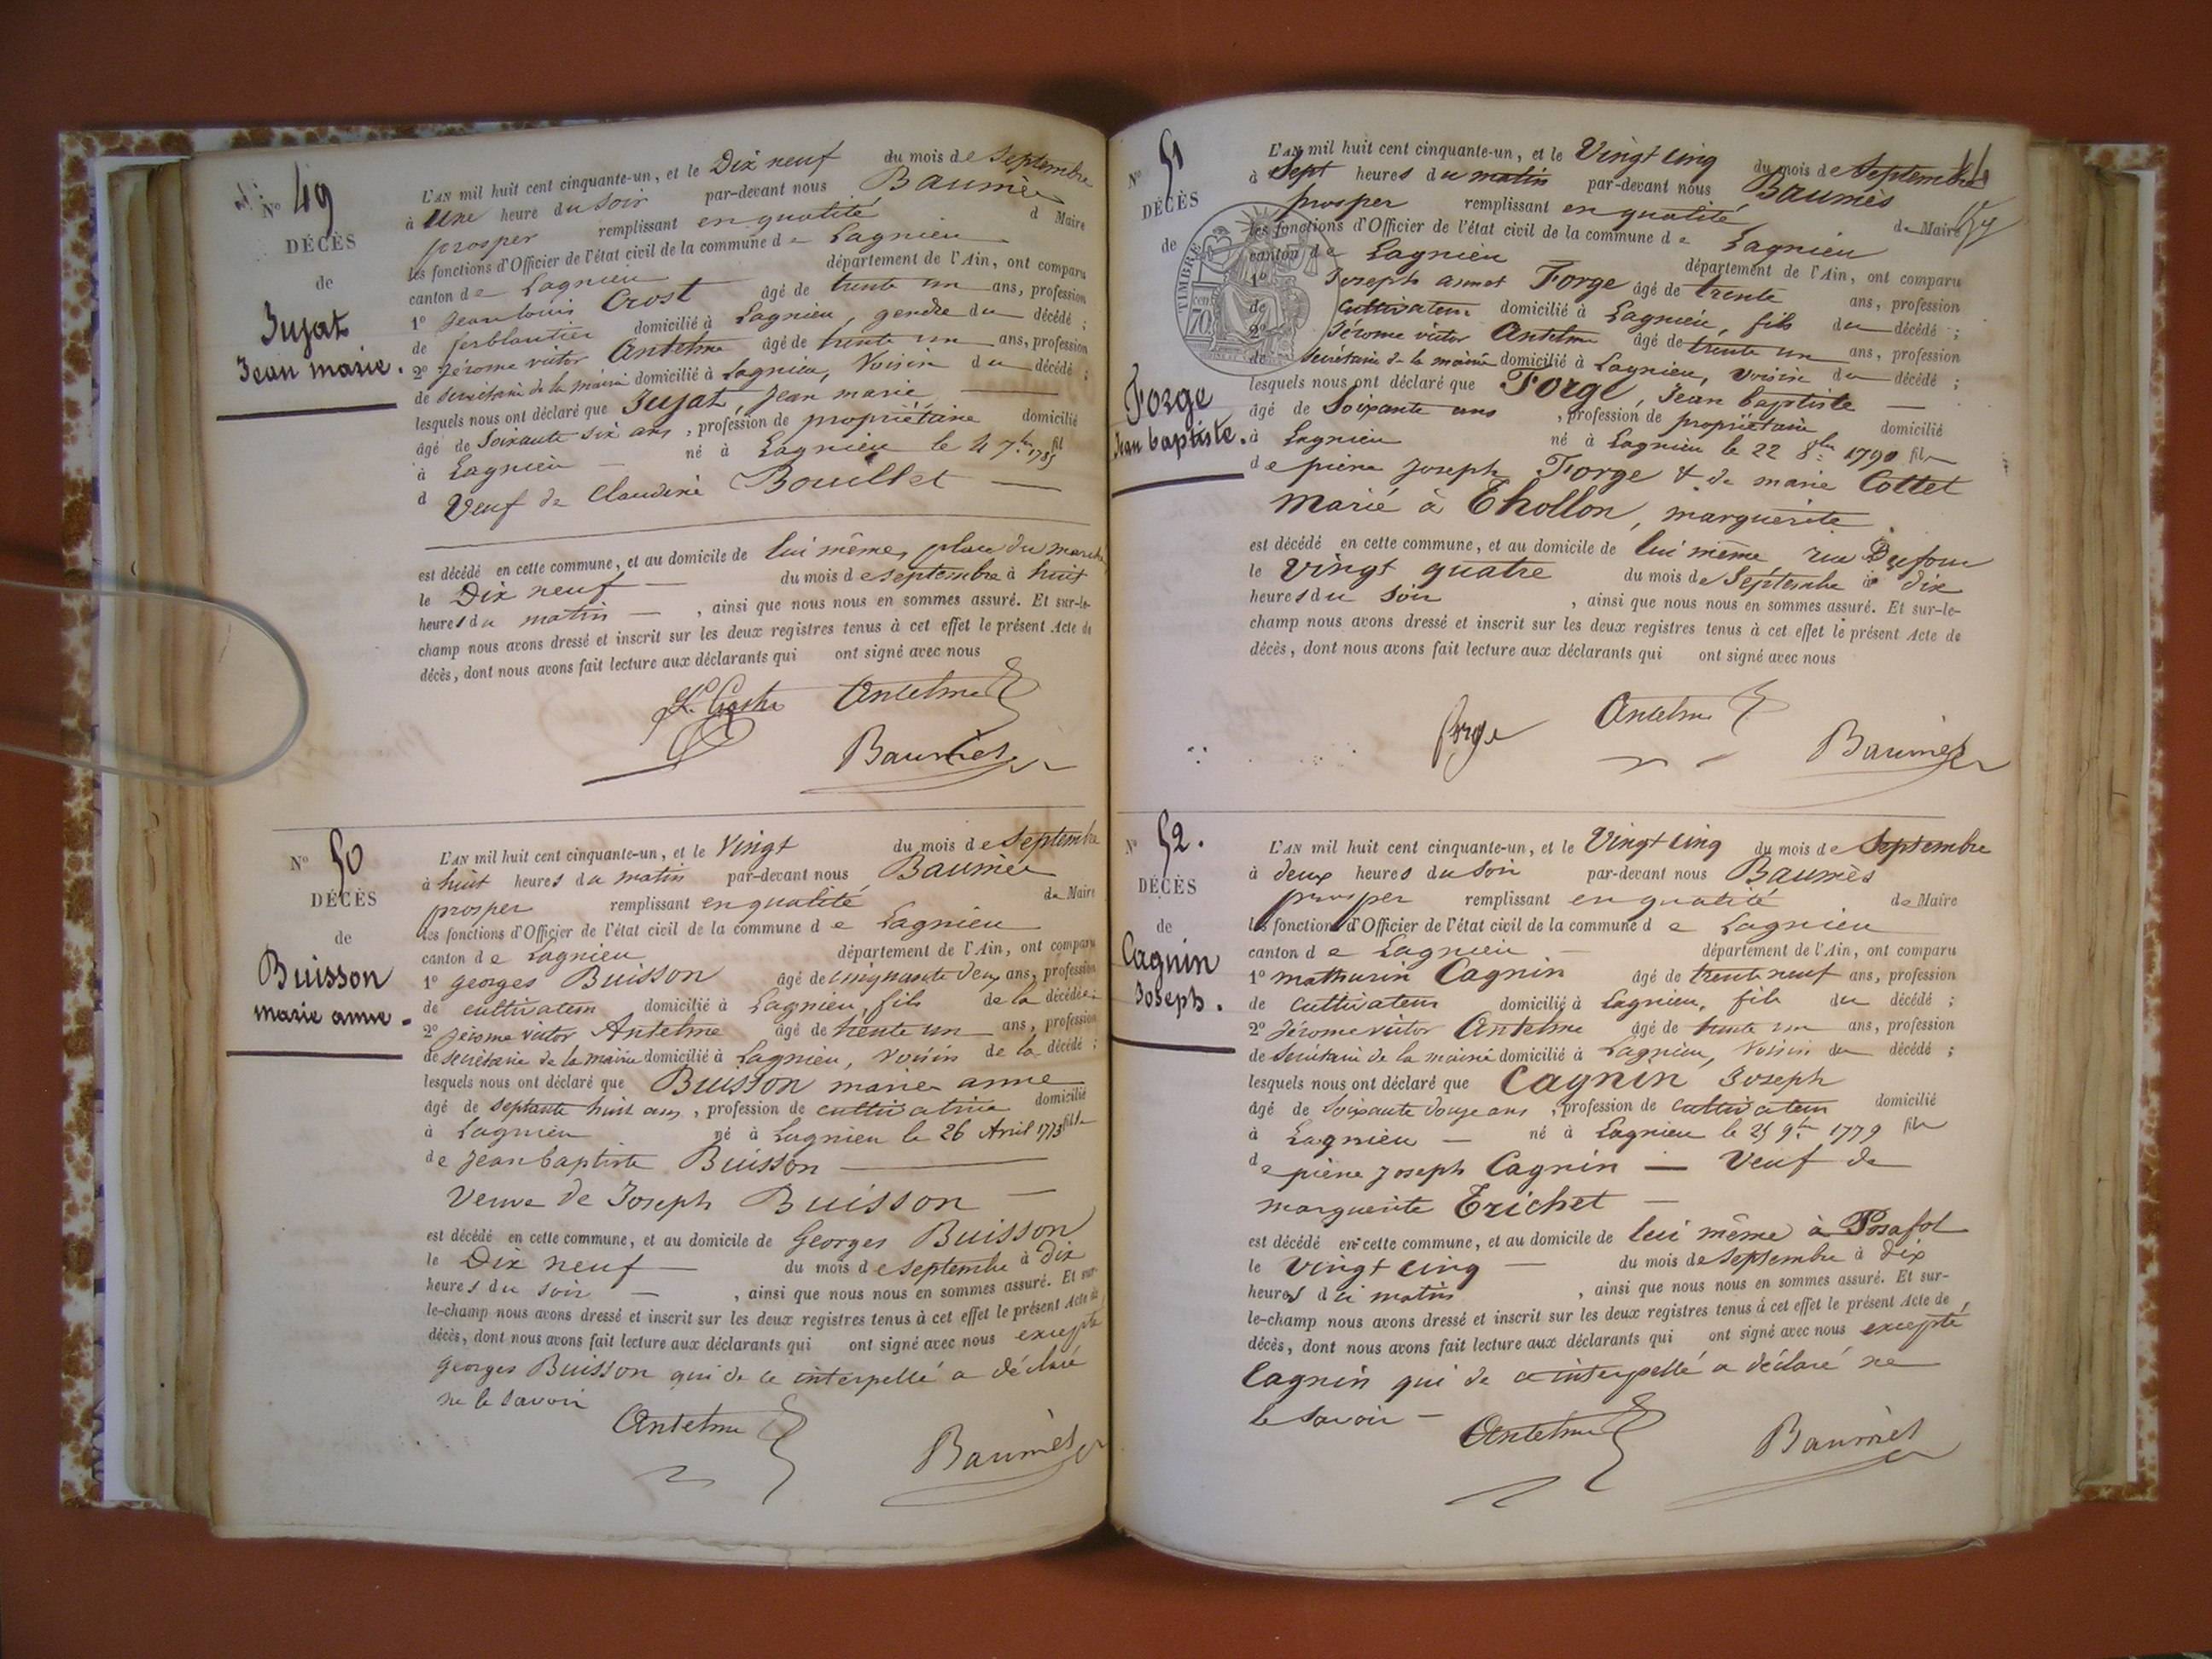 N° 49
DÉCÈS
de
Jujat
Jean marie.
L'AN mil huit cent cinquante-un, et le Dix neuf du mois de Septembre
à Une heure du Soir par-devant nous Baumès
prosper remplissant en qualité d Maire
les fonctions d'Officier de l'état civil de la commune de Lagnieu
canton de Lagnieu département de l'Ain, ont comparu
1° Jean louis Crost âgé de trente un ans, profession
de ferblantier domicilié à Lagnieu, gendre du décédé ;
2° Jérome victor Antelme âgé de trente un ans, profession
de secrétaire de la mairie domicilié à Lagnieu, Voisin du décédé ;
lesquels nous ont déclaré que Jujat, Jean marie
âgé de Soixante six ans, profession de propriétaire domicilié
à Lagnieu né à Lagnieu le 4 7bre 1785 fil
d Veuf de Claudine Bouillet
est décédé en cette commune, et au domicile de lui même, place du marché
le Dix neuf du mois de septembre à huit
heures du matin, ainsi que nous nous en sommes assuré. Et sur-le-
champ nous avons dressé et inscrit sur les deux registres tenus à cet effet le présent Acte de
décès, dont nous avons fait lecture aux déclarants qui ont signé avec nous
Antelme
Baumès
N° 50
DÉCÈS
de
Buisson
marie anne.
L'AN mil huit cent cinquante-un, et le Vingt du mois de Septembre
à huit heures du matin par-devant nous Baumès
prosper remplissant en qualité de Maire
les fonctions d'Officier de l'état civil de la commune de Lagnieu
canton de Lagnieu département de l'Ain, ont comparu
1° Georges Buisson âgé de cinquante deux ans, profession
de cultivateur domicilié à Lagnieu, fils de la décédée ;
2° Jérome victor Antelme âgé de trente un ans, profession
de secrétaire de la mairie domicilié à Lagnieu, voisin de la décédé ;
lesquels nous ont déclaré que Buisson marie anne
âgé de septante huit ans, profession de cultivatrice domicilié
à Lagnieu né à Lagnieu le 26 Avril 1773 fille
de Jean baptiste Buisson
Veuve de Joseph Buisson
est décédé en cette commune, et au domicile de Georges Buisson
le Dix neuf du mois de septembre à Dix
heures du soir, ainsi que nous nous en sommes assuré. Et sur-
le-champ nous avons dressé et inscrit sur les deux registres tenus à cet effet le présent Acte de
décès, dont nous avons fait lecture aux déclarants qui ont signé avec nous excepté
Georges Buisson qui de ce interpellé a déclaré
ne le savoir
Antelme
Baumès
N° 51
DÉCÈS
de
Forge
Jean baptiste.
TIMBRE
70
L'AN mil huit cent cinquante-un, et le Vingt cinq du mois de Septembre
à Sept heures du matin par-devant nous Baumès
prosper remplissant en qualité de Maire
les fonctions d'Officier de l'état civil de la commune de Lagnieu
canton de Lagnieu département de l'Ain, ont comparu
1° Joseph Forge âgé de trente ans, profession
de cultivateur domicilié à Lagnieu, fils du décédé ;
2° Jérome victor Antelme âgé de trente un ans, profession
de secrétaire de la mairie domicilié à Lagnieu, voisin du décédé ;
lesquels nous ont déclaré que Forge, Jean baptiste
âgé de Soixante ans, profession de propriétaire domicilié
à Lagnieu né à Lagnieu le 22 8bre 1790 fils
de pierre Joseph Forge & de marie Cottet
Marié à Thollon, marguerite
est décédé en cette commune, et au domicile de lui même rue Dufour
le Vingt quatre du mois de Septembre à dix
heures du Soir, ainsi que nous nous en sommes assuré. Et sur-le-
champ nous avons dressé et inscrit sur les deux registres tenus à cet effet le présent Acte de
décès, dont nous avons fait lecture aux déclarants qui ont signé avec nous
forge
Antelme
Baumès
N° 52.
DÉCÈS
de
Cagnin
Joseph.
L'AN mil huit cent cinquante-un, et le Vingt cinq du mois de Septembre
à deux heures du Soir par-devant nous Baumès
prosper remplissant en qualité de Maire
les fonctions d'Officier de l'état civil de la commune de Lagnieu
canton de Lagnieu département de l'Ain, ont comparu
1° mathurin Cagnin âgé de trente neuf ans, profession
de cultivateur domicilié à Lagnieu, fils du décédé ;
2° Jérome victor Antelme âgé de trente un ans, profession
de Secrétaire de la mairie domicilié à Lagnieu, Voisin du décédé ;
lesquels nous ont déclaré que Cagnin Joseph
âgé de Soixante douze ans, profession de cultivateur domicilié
à Lagnieu né à Lagnieu le 25 9bre 1779 fils
de pierre Joseph Cagnin — Veuf de
marguerite Trichet
est décédé en cette commune, et au domicile de lui même à Posafol
le Vingt cinq du mois de septembre à dix
heures du matin, ainsi que nous nous en sommes assuré. Et sur-
le-champ nous avons dressé et inscrit sur les deux registres tenus à cet effet le présent Acte de
décès, dont nous avons fait lecture aux déclarants qui ont signé avec nous excepté
Cagnin qui de ce interpellé a déclaré ne
le savoir
Antelme
Baumès